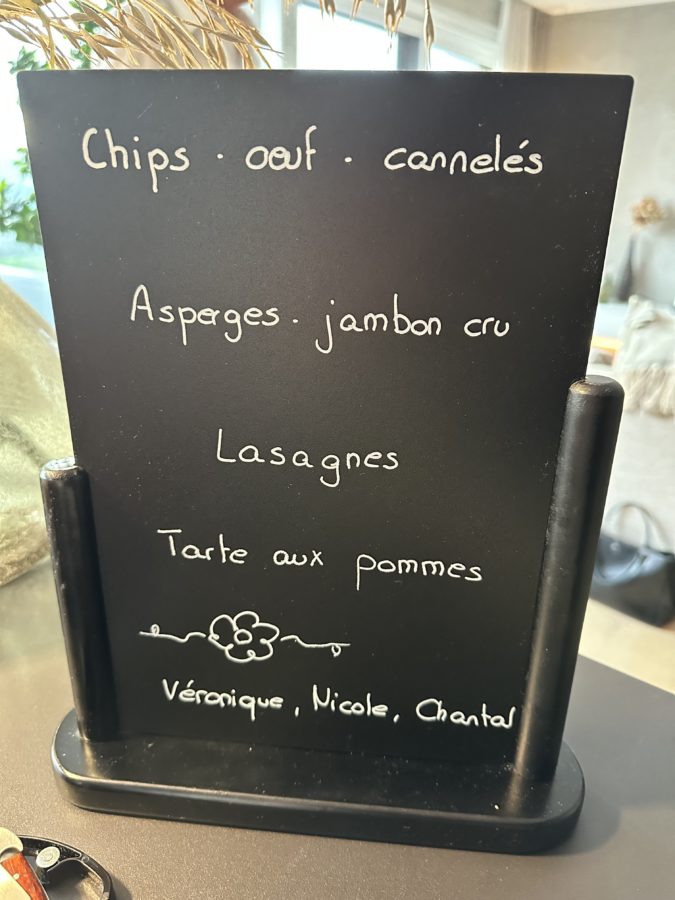 Chips · oeuf · cannelés
Asperges · jambon cru
Lasagnes
Tarte aux pommes
Véronique, Nicole, Chantal